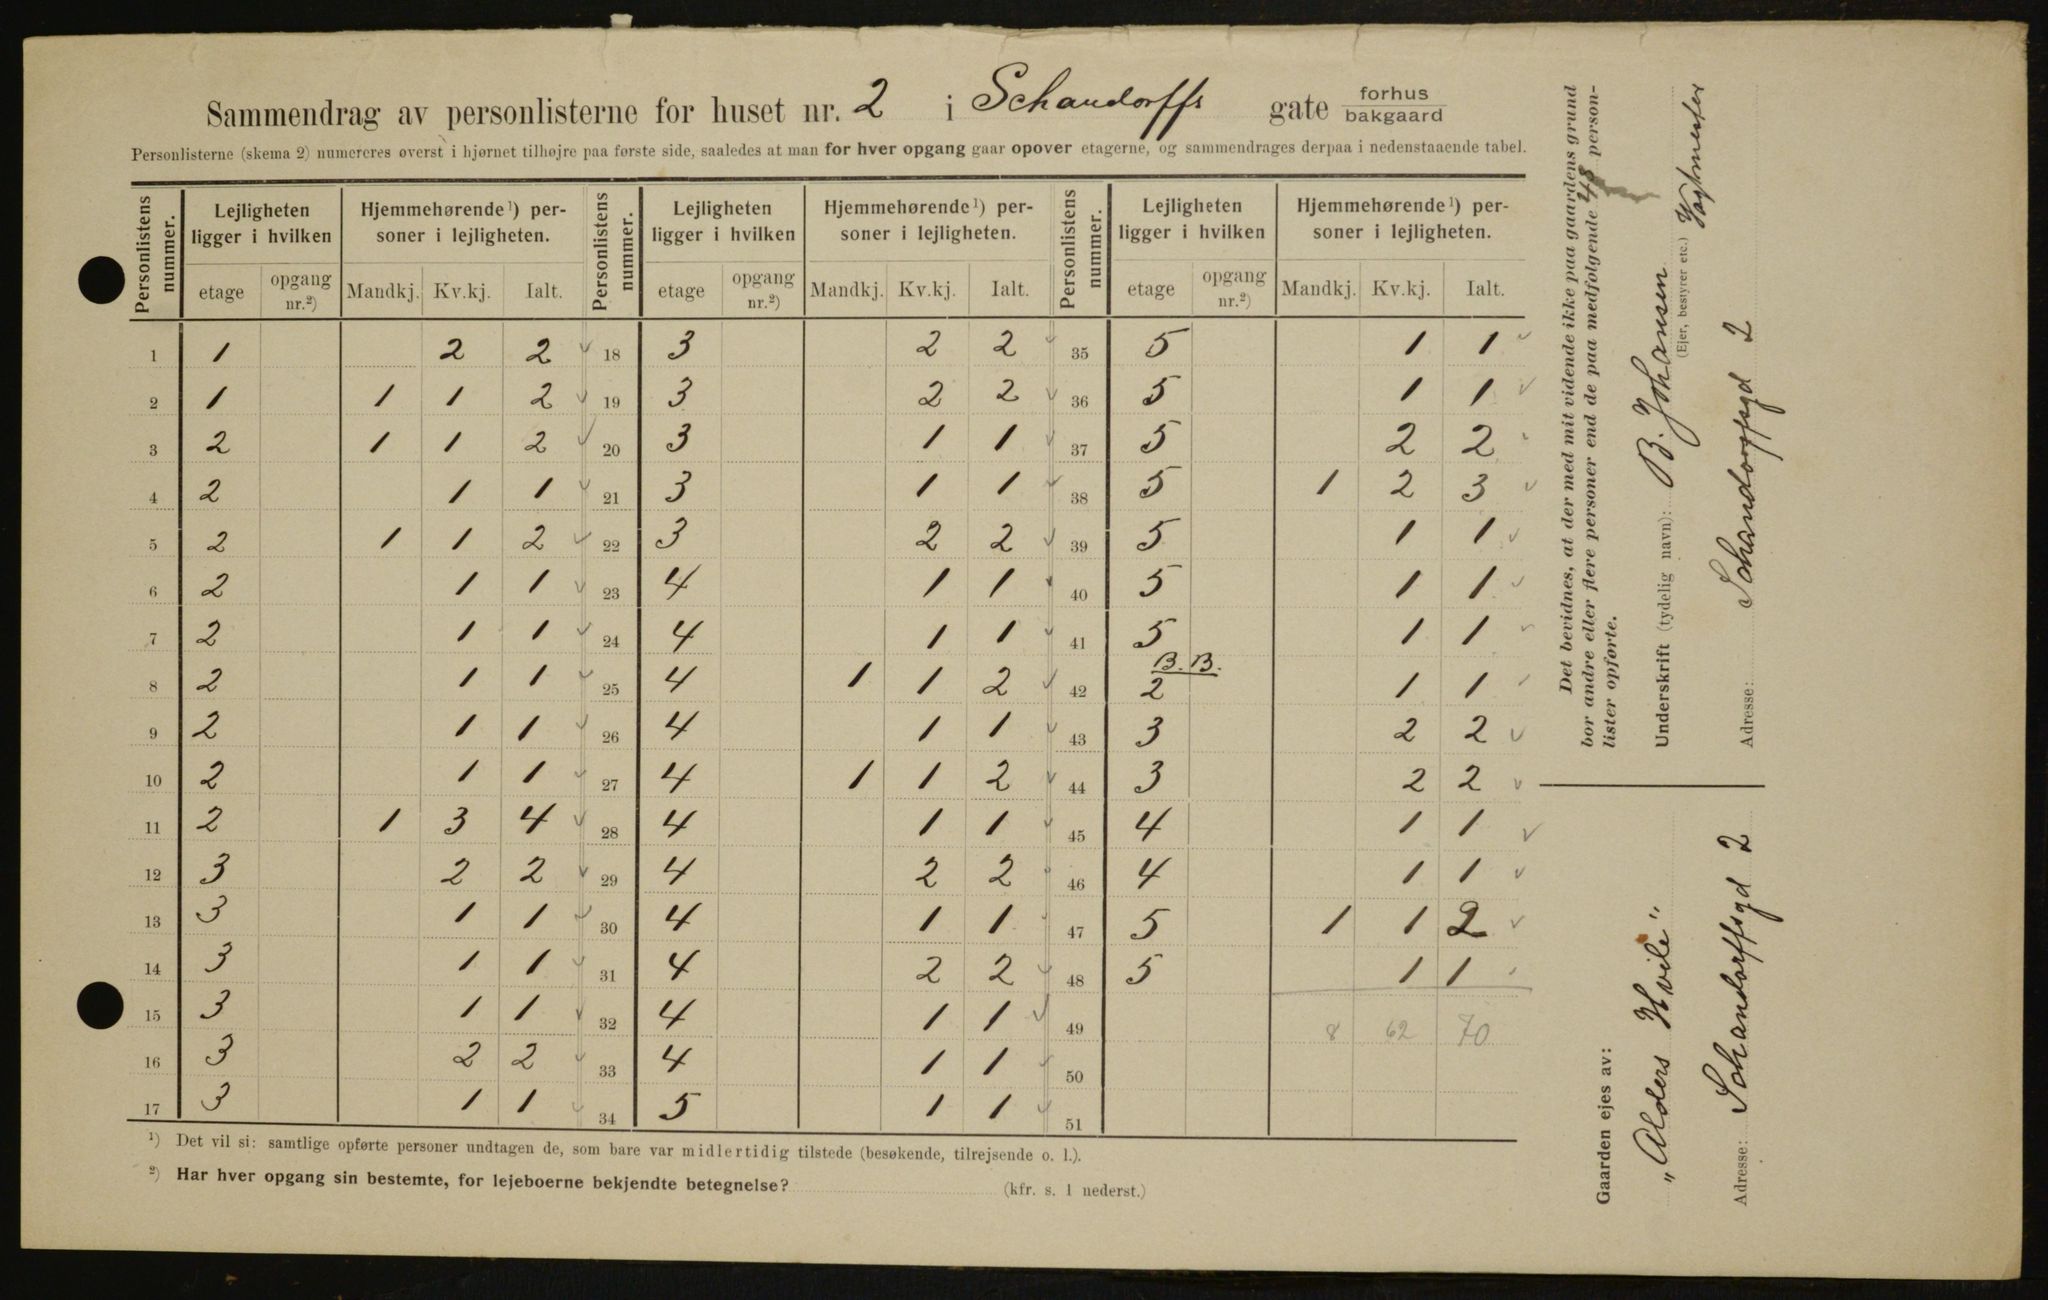 Sammendrag av personlisterne for huset nr. 2 i Schandorffs gate forhus bakgaard
Personlisterne (skema 2) numereres øverst i hjørnet tilhøjre paa første side, saaledes at man for hver opgang gaar opover etagerne, og sammendrages derpaa i nedenstaaende tabel.
Personlistens nummer. Lejligheten ligger i hvilken Hjemmehørende ¹) personer i lejligheten. Personlistens nummer. Lejligheten ligger i hvilken Hjemmehørende ¹) personer i lejligheten. Personlistens nummer. Lejligheten ligger i hvilken Hjemmehørende ¹) personer i lejligheten.
etage opgang nr.²) Mandkj. Kv.kj. Ialt. etage opgang nr.²) Mandkj. Kv.kj. Ialt. etage opgang nr.²) Mandkj. Kv.kj. Ialt.
1 1 2 2 18 3 2 2 35 5 1 1
2 1 1 1 2 19 3 2 2 36 5 1 1
3 2 1 1 2 20 3 1 1 37 5 2 2
4 2 1 1 21 3 1 1 38 5 1 2 3
5 2 1 1 2 22 3 2 2 39 5 1 1
6 2 1 1 23 4 1 1 40 5 1 1
7 2 1 1 24 4 1 1 41 5 1 1
B. B.
8 2 1 1 25 4 1 1 2 42 2 1 1
9 2 1 1 26 4 1 1 43 3 2 2
10 2 1 1 27 4 1 1 2 44 3 2 2
11 2 1 3 4 28 4 1 1 45 4 1 1
12 3 2 2 29 4 2 2 46 4 1 1
13 3 1 1 30 4 1 1 47 5 1 1 2
14 3 1 1 31 4 2 2 48 5 1 1
15 3 1 1 32 4 1 1 49 8 62 70
16 3 2 2 33 4 1 1 50
17 3 1 1 34 5 1 1 51
¹) Det vil si: samtlige opførte personer undtagen de, som bare var midlertidig tilstede (besøkende, tilrejsende o. l.).
²) Har hver opgang sin bestemte, for lejeboerne bekjendte betegnelse? (kfr. s. 1 nederst.)
Det bevidnes, at der med mit vidende ikke paa gaardens grund
bor andre eller flere personer end de paa medfølgende 48 person-
lister opførte.
Underskrift (tydelig navn): B. Johansen Vagtmester
(Ejer, bestyrer etc.)
Adresse: Schandorffsgd 2
Gaarden ejes av:
"Alders Hvile"
Adresse: Schandorffsgd 2